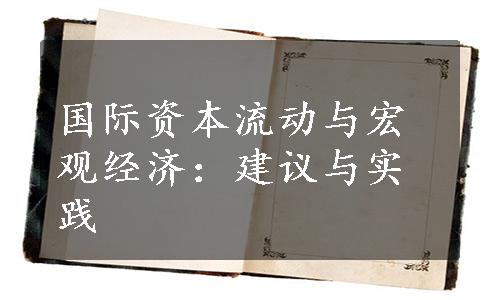 国际资本流动与宏
观经济：建议与实
践